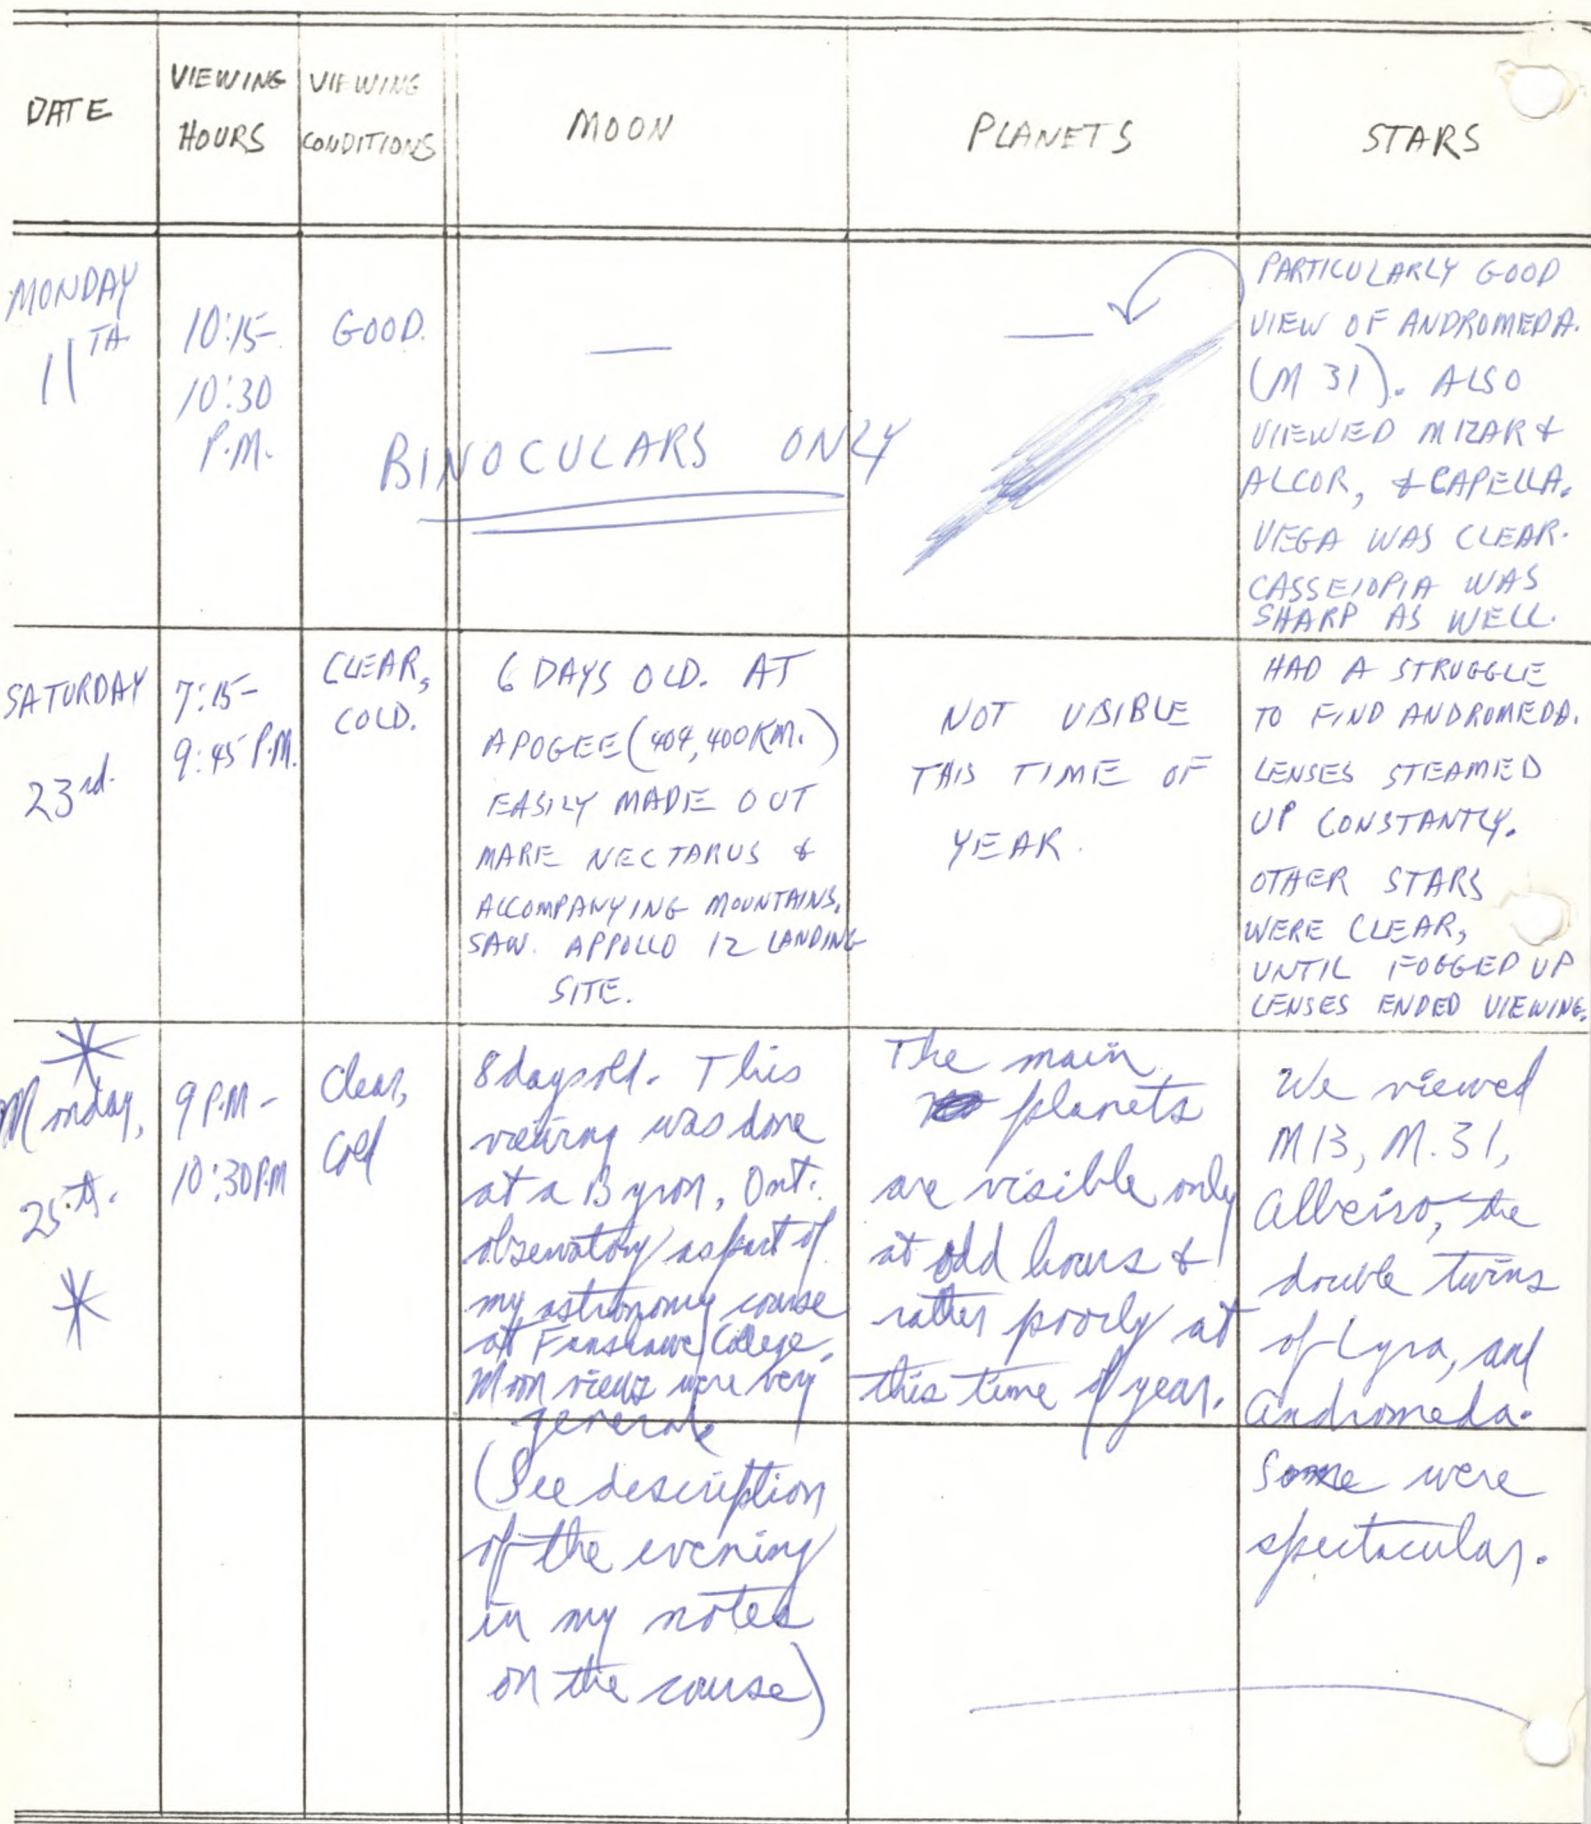 DATE
VIEWING
HOURS
VIEWING
CONDITIONS
MOON
PLANETS
STARS
MONDAY
11TH
10:15-
10:30
P.M.
GOOD.
—
—
BINOCULARS ONLY
PARTICULARLY GOOD
VIEW OF ANDROMEDA.
(M 31). ALSO
VIEWED MIZAR &
ALCOR, & CAPELLA.
VEGA WAS CLEAR.
CASSEIOPIA WAS
SHARP AS WELL.
SATURDAY
23rd.
7:15-
9:45 P.M.
CLEAR,
COLD.
6 DAYS OLD. AT
APOGEE (404,400 KM.)
EASILY MADE OUT
MARE NECTARUS &
ACCOMPANYING MOUNTAINS.
SAW. APPOLLO 12 LANDING
SITE.
NOT VISIBLE
THIS TIME OF
YEAR.
HAD A STRUGGLE
TO FIND ANDROMEDA.
LENSES STEAMED
UP CONSTANTLY.
OTHER STARS
WERE CLEAR,
UNTIL FOGGED UP
LENSES ENDED VIEWING.
*
Monday,
25th.
*
9 P.M -
10:30 P.M
Clear,
Cold
8 days old. This
viewing was done
at a Byron, Ont.
observatory as part of
my astronomy course
at Fanshawe College.
Moon views were very
general.
(See description
of the evening
in my notes
on the course)
The main
planets
are visible only
at odd hours &
rather poorly at
this time of year.
We viewed
M13, M.31,
Albeiro, the
double twins
of Lyra, and
Andromeda.
Some were
spectacular.